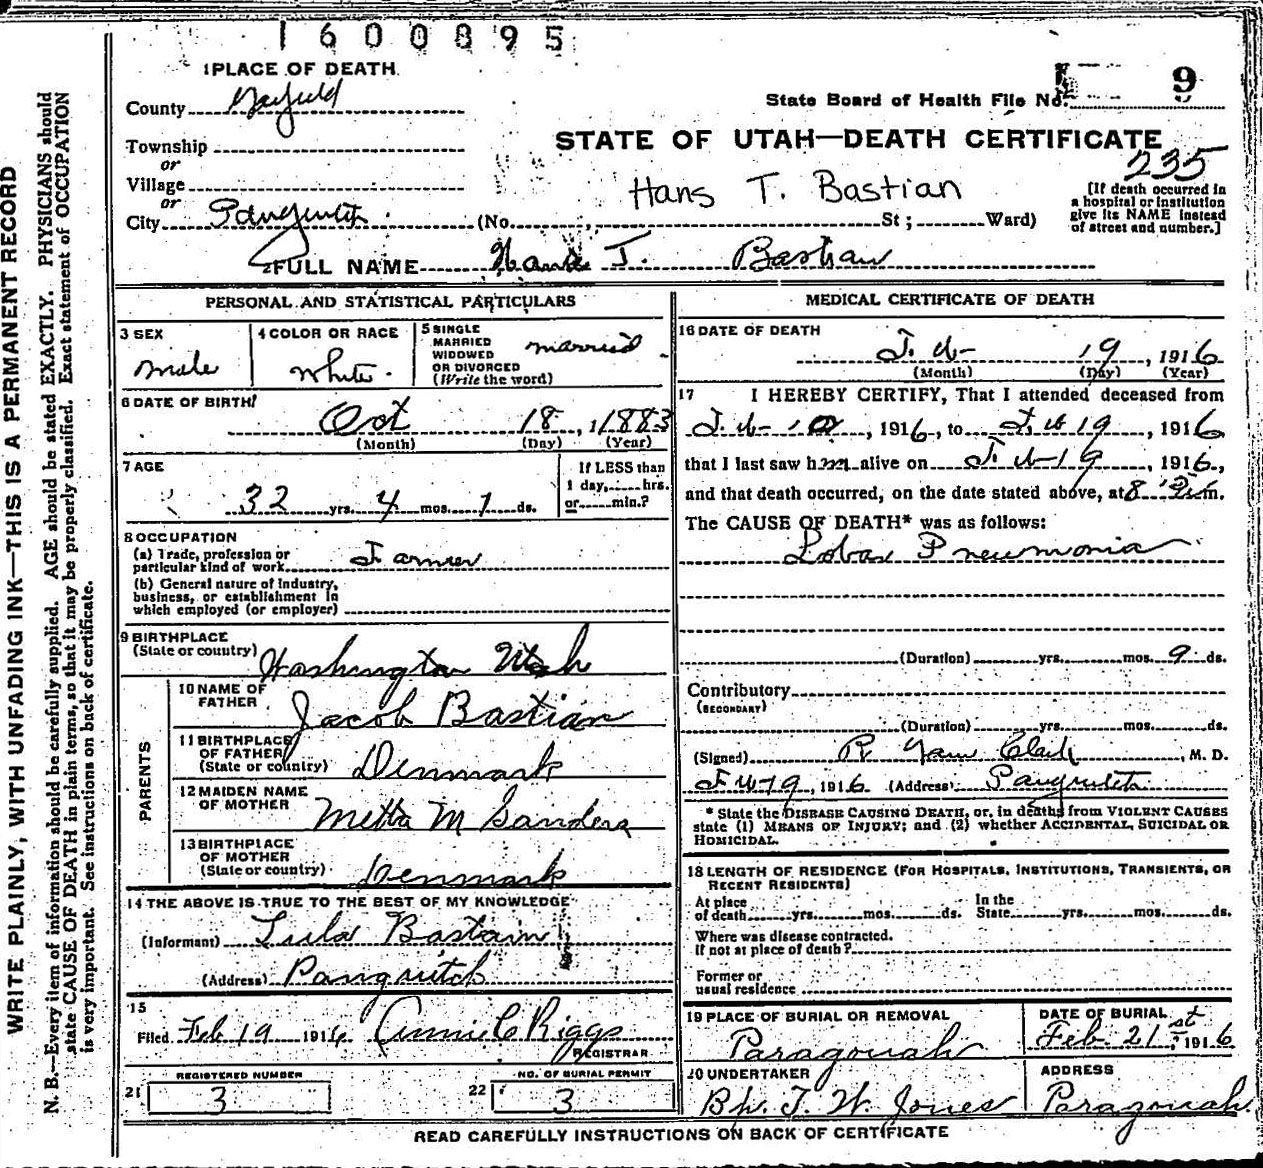 1600895
1 PLACE OF DEATH
County Garfield
State Board of Health File No. 9
Township
or
STATE OF UTAH—DEATH CERTIFICATE
235
Village
or
Hans T. Bastian
City Panguitch (No. St; Ward)
[If death occurred in
a hospital or institution
give its NAME instead
of street and number.]
2 FULL NAME Hans T. Bastian
PERSONAL AND STATISTICAL PARTICULARS
3 SEX
male
4 COLOR OR RACE
white
5 SINGLE
MARRIED
WIDOWED
OR DIVORCED
(Write the word)
married
6 DATE OF BIRTH
Oct 18, 1883
(Month) (Day) (Year)
7 AGE
32 yrs. 4 mos. 1 ds.
If LESS than
1 day, hrs.
or min.?
8 OCCUPATION
(a) Trade, profession or
particular kind of work Farmer
(b) General nature of industry,
business, or establishment in
which employed (or employer)
9 BIRTHPLACE
(State or country) Washington Utah
PARENTS
10 NAME OF
FATHER Jacob Bastian
11 BIRTHPLACE
OF FATHER
(State or country) Denmark
12 MAIDEN NAME
OF MOTHER Metta M Sanders
13 BIRTHPLACE
OF MOTHER
(State or country) Denmark
14 THE ABOVE IS TRUE TO THE BEST OF MY KNOWLEDGE
(Informant) Lula Bastain
(Address) Panguitch
15
Filed Feb 19 1916 Annie C Riggs
REGISTRAR
REGISTERED NUMBER
21 3
NO. OF BURIAL PERMIT
22 3
MEDICAL CERTIFICATE OF DEATH
16 DATE OF DEATH
Feb 19, 1916
(Month) (Day) (Year)
17 I HEREBY CERTIFY, That I attended deceased from
Feb 10, 1916, to Feb 19, 1916
that I last saw him alive on Feb 19, 1916,
and that death occurred, on the date stated above, at 8 m.
The CAUSE OF DEATH* was as follows:
Lobar Pneumonia
(Duration) yrs. mos. 9 ds.
Contributory
(SECONDARY)
(Duration) yrs. mos. ds.
(Signed) R Clark, M. D.
Feb 19, 1916 (Address) Panguitch
* State the DISEASE CAUSING DEATH, or, in deaths from VIOLENT CAUSES
state (1) MEANS OF INJURY; and (2) whether ACCIDENTAL, SUICIDAL OR
HOMICIDAL.
18 LENGTH OF RESIDENCE (FOR HOSPITALS, INSTITUTIONS, TRANSIENTS, OR
RECENT RESIDENTS)
At place
of death yrs. mos. ds.
In the
State yrs. mos. ds.
Where was disease contracted.
If not at place of death?
Former or
usual residence
19 PLACE OF BURIAL OR REMOVAL
Paragonah
DATE OF BURIAL
Feb. 21st, 1916
20 UNDERTAKER
Bp. T. W. Jones
ADDRESS
Paragonah
READ CAREFULLY INSTRUCTIONS ON BACK OF CERTIFICATE
WRITE PLAINLY, WITH UNFADING INK—THIS IS A PERMANENT RECORD
N. B.—Every item of information should be carefully supplied. AGE should be stated EXACTLY. PHYSICIANS should
state CAUSE OF DEATH in plain terms, so that it may be properly classified. Exact statement of OCCUPATION
is very important. See instructions on back of certificate.